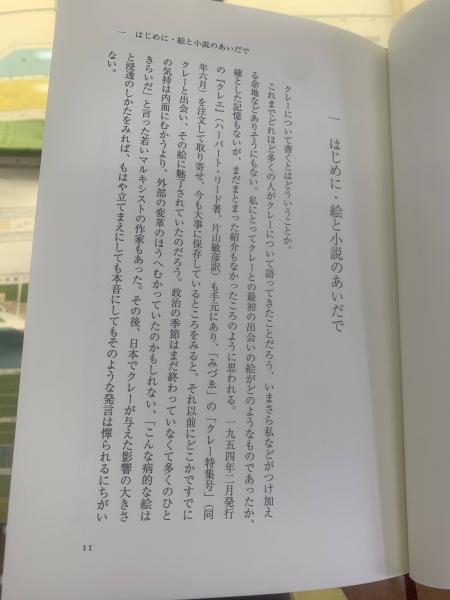 一　はじめに・絵と小説のあいだで
一　はじめに・絵と小説のあいだで
クレーについて書くとはどういうことか。
これまでどれほど多くの人がクレーについて語ってきたことだろう、いまさら私などがつけ加え
る余地などありそうにもない。私にとってクレーとの最初の出会いの絵がどのようなものであったか、
確とした記憶もないが、まだまとまった紹介もなかったころのように思われる。一九五四年二月発行
の『クレエ』（ハーバート・リード著、片山敏彦訳）も手元にあり、「みづゑ」の「クレー特集号」（同
年六月）を注文して取り寄せ、今も大事に保存しているところをみると、それ以前にどこかですでに
クレーと出会い、その絵に魅了されていたのだろう。政治の季節はまだ終わっていなくて多くのひと
の気持は内面にむかうより、外部の変革のほうへむかっていたのかもしれない、「こんな病的な絵は
きらいだ」と言った若いマルキシストの作家もあった。その後、日本でクレーが与えた影響の大きさ
と浸透のしかたをみれば、もはや立てまえにしても本音にしてもそのような発言は憚られるにちがい
ない。
11